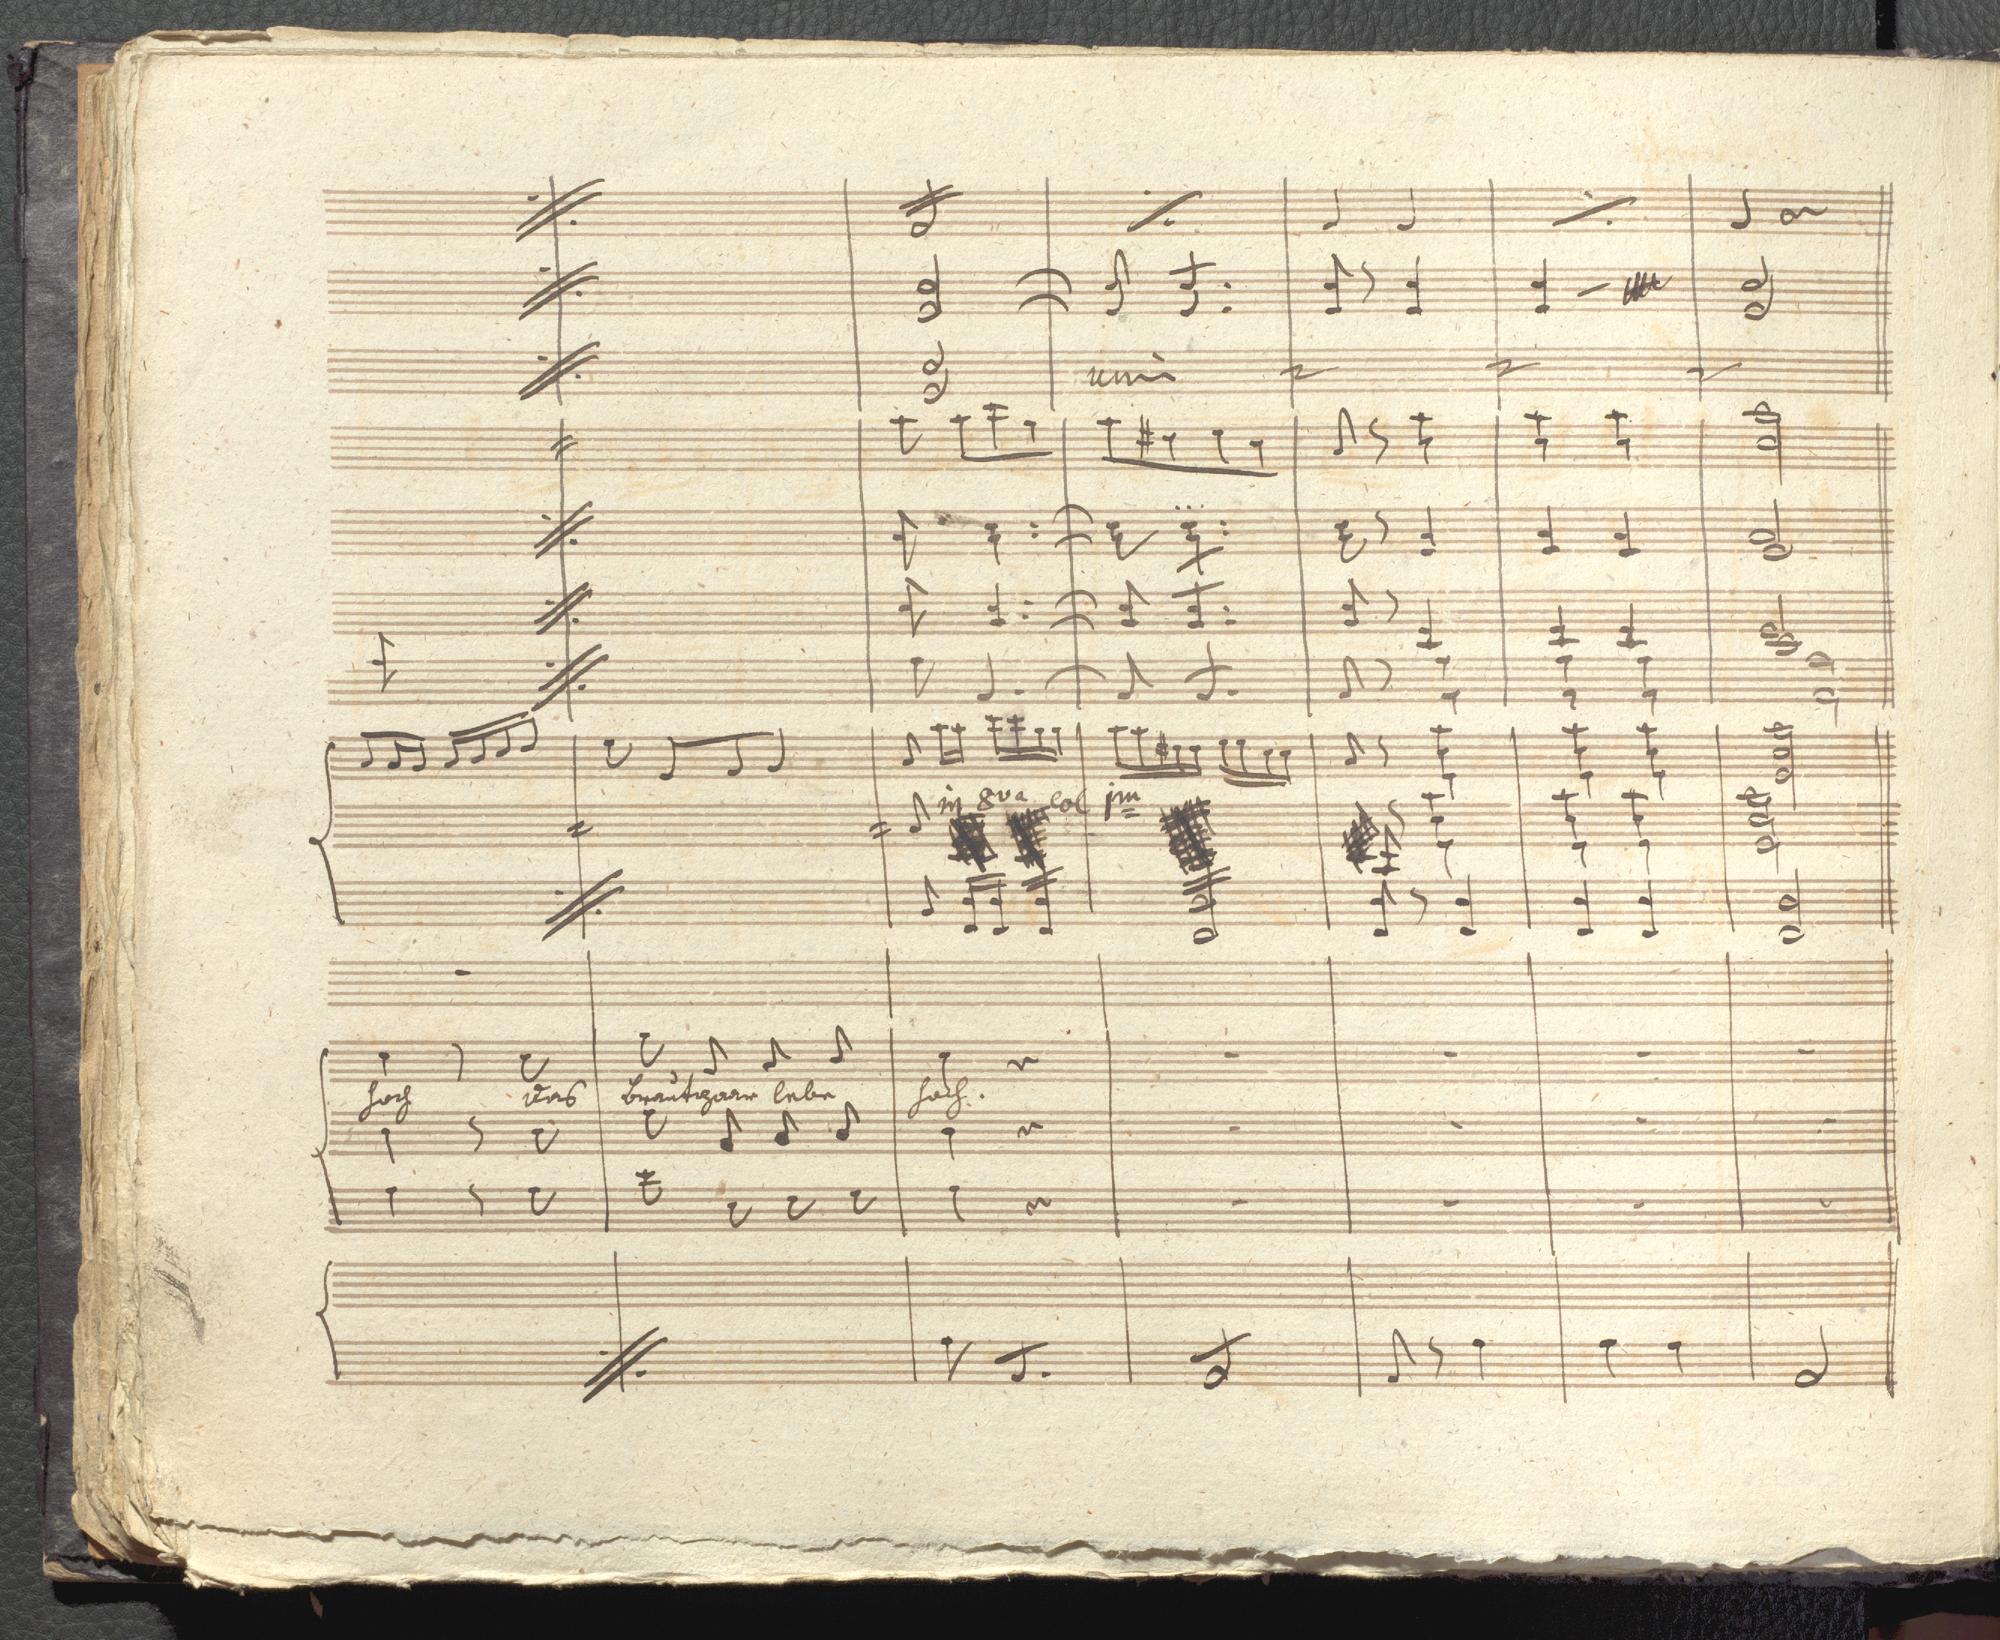 unis
in 8va col pmo
hoch das Brautpaar lebe hoch.